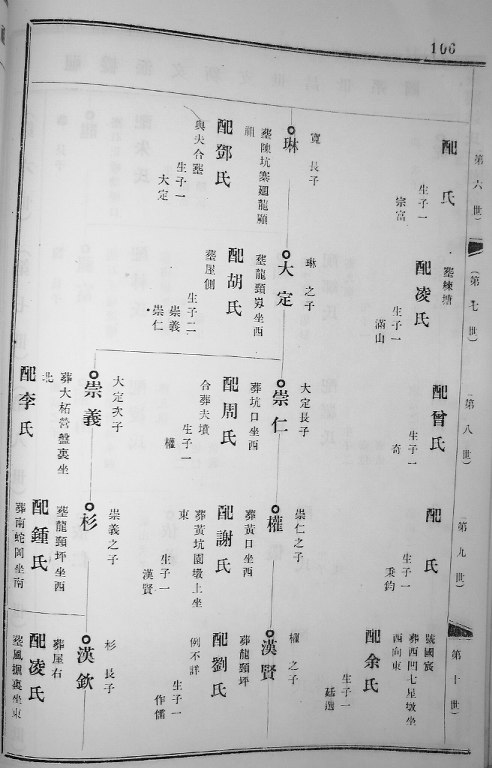 106
(第六世)
配 氏
生子一
宗富
寬 長子
琳
葬陳坑寨廻龍顧
祖
配鄧氏
與夫合葬
生子一
大定
(第七世)
葬楝塘
配凌氏
生子一
滿山
琳 之子
大定
葬龍頸坐西
配胡氏
葬屋側
生子二
崇義
崇仁
(第八世)
配曾氏
生子一
奇
大定長子
崇仁
葬坑口坐西
配周氏
合葬夫墳
生子一
權
大定次子
崇義
葬大柘營盤裏坐
北
配李氏
(第九世)
配 氏
生子一
秉鈞
崇仁之子
權
葬黃口坐西
配謝氏
葬黃坑園墩上坐
東
生子一
漢賢
崇義之子
杉
葬龍頸坪坐西
配鍾氏
葬南蛇岡坐南
(第十世)
號國宸
葬西凹七星墩坐
西向東
配余氏
生子一
權 之子
漢賢
葬龍頸坪
配劉氏
例不詳
生子一
作儒
杉 長子
漢欽
葬屋右
配凌氏
葬風裏坐東